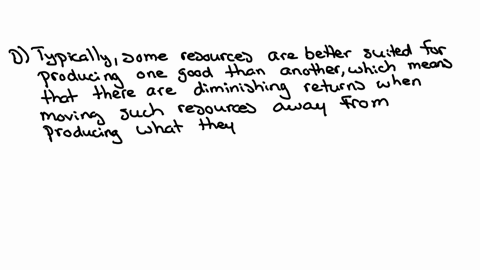 D) Typically, some resources are better suited for
producing one good than another, which means
that there are diminishing returns when
moving such resources away from
producing what they